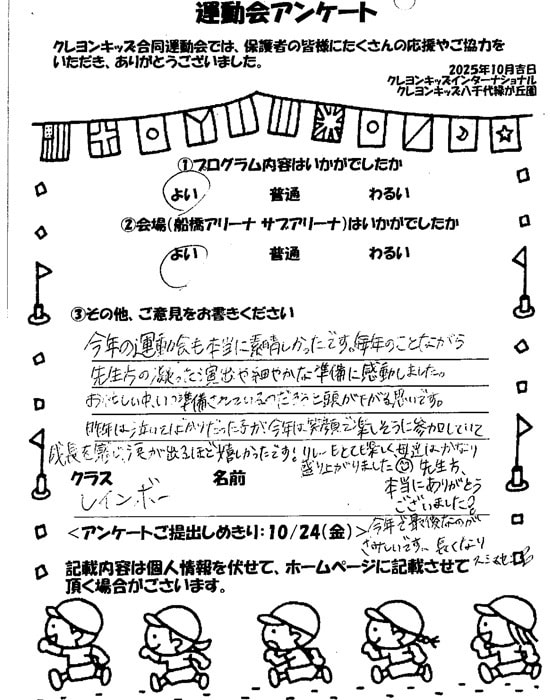 運動会アンケート
クレヨンキッズ合同運動会では、保護者の皆様にたくさんの応援やご協力を
いただき、ありがとうございました。
2025年10月吉日
クレヨンキッズインターナショナル
クレヨンキッズ八千代緑が丘園
①プログラム内容はいかがでしたか
よい 普通 わるい
②会場(船橋アリーナ サブアリーナ)はいかがでしたか
よい 普通 わるい
③その他、ご意見をお書きください
今年の運動会も本当に素晴しかったです。毎年のことながら
先生方の凝った演出や細やかな準備に感動しました。
お忙しい中、いつ準備されているのだろうと頭が下がる思いです。
昨年は泣いてばかりだった子が今年は笑顔で楽しそうに参加していて
成長を感じ、涙が出るほど嬉しかったです!リレーもとても楽しく母達はかなり
盛り上がりました 先生方、
本当にありがとう
ございました
クラス 名前
レインボー
今年で最後なのが
さみしいです。長くなり
<アンケートご提出しめきり:10/24(金)>
記載内容は個人情報を伏せて、ホームページに記載させて
頂く場合がございます。